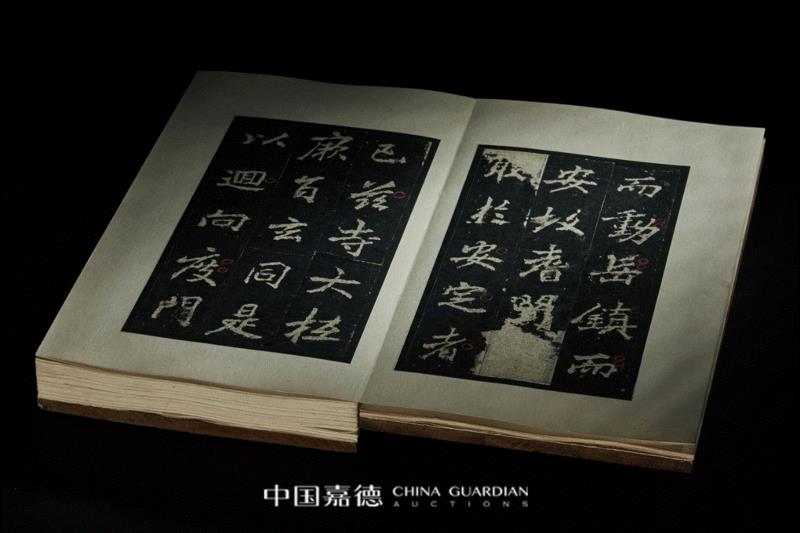 而動岳鎮而
安故者聞
取於安定者
已茲寺大抵
厥旨玄同是
以迴向度門
中国嘉德 CHINA GUARDIAN
AUCTIONS